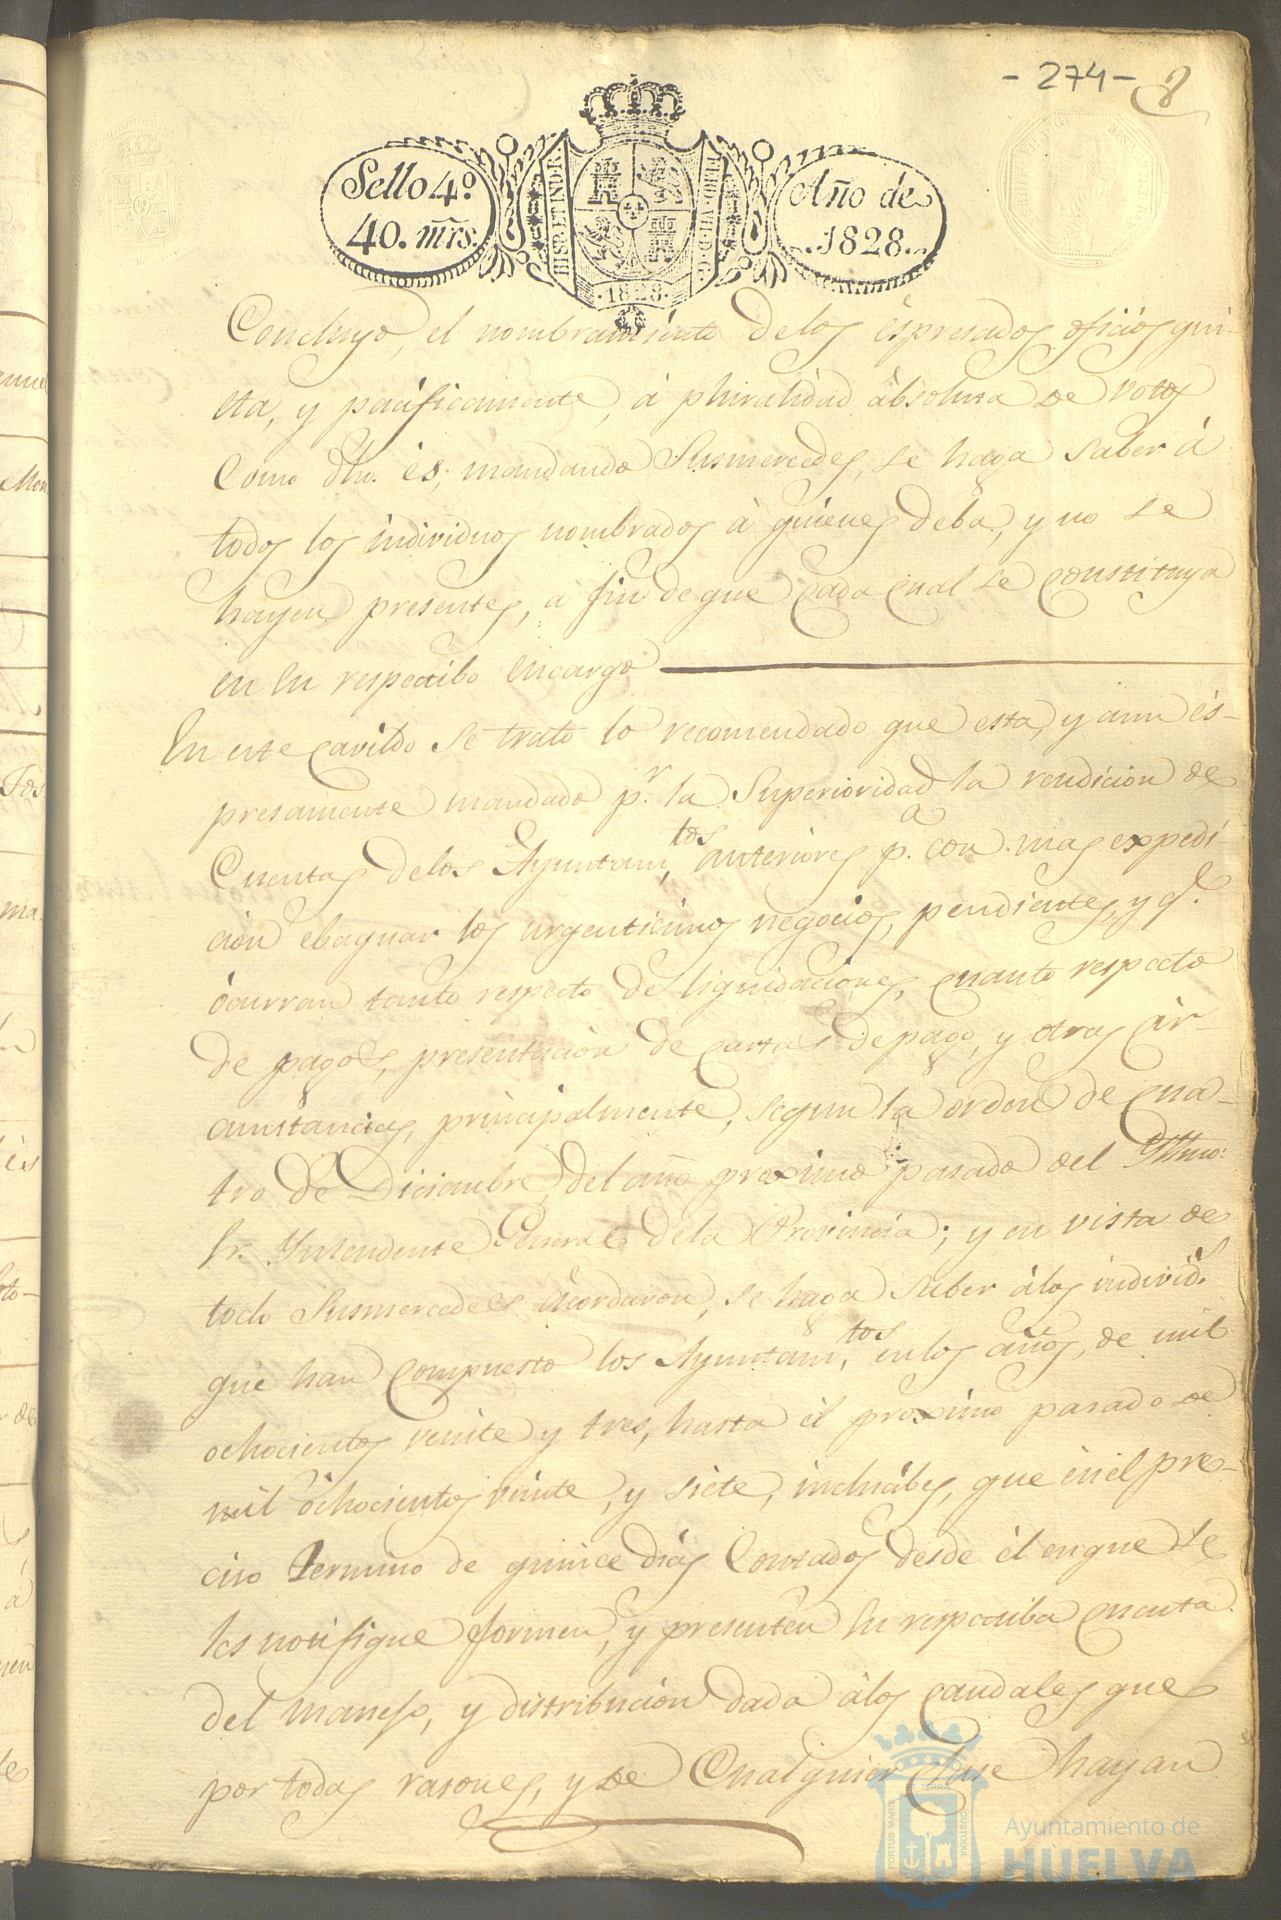 - 274 - 8
Sello 4º
40. mrs.
HISP. ET IND. R.
FERD. VII. D. G.
1828.
Año de
1828.
Concluyo, el nombramiento delos éspresados oficios qui-
eta, y pacificamente, á pluralidad ábsoluta de votos
Como dho. és; mandando Susmercedes, se haga saber á
todos los individuos nombrados á quienes deba, y no se
hayen presentes, á fin de que cada cual se constituya
en su respectibo encargo
En este cavildo se trato lo recomendado que esta, y aun és-
presamente mandado p.r la Superioridad la rendicion de
Cuentas delos Ayuntam.tos anteriores p.a con mas expedi-
cion ebaquar los urgenticimos negocios, pendientes, y q.e
ócurran tanto respecto de liquidaciones, cuanto respecto
de pagos, presentacion de cartas de pago, y otras cir-
cunstancias, principalmente, segun la orden de cua-
tro de Diciembre, del año proximo pasado del Yltmo:
Sr. Yntendente General dela Provincia; y en vista de
todo Susmercedes acordaron, se haga saber álos individ.s
que han compuesto los Ayuntam.tos en los años, de mil
ochocientos veinte y tres, hasta él proximo pasado de
mil óchocientos veinte, y siete, inclusibes, que én él pre-
ciso termino de quince dias Contados desde él en que se
les notifique formen, y presenten su respectiba cuenta
del manejo, y distribucion dada álos caudales que
por todas rasones, y de cualquier clase hayan
PORTUS MARIS
ET TERRÆ
CUSTODIA
Ayuntamiento de
HUELVA